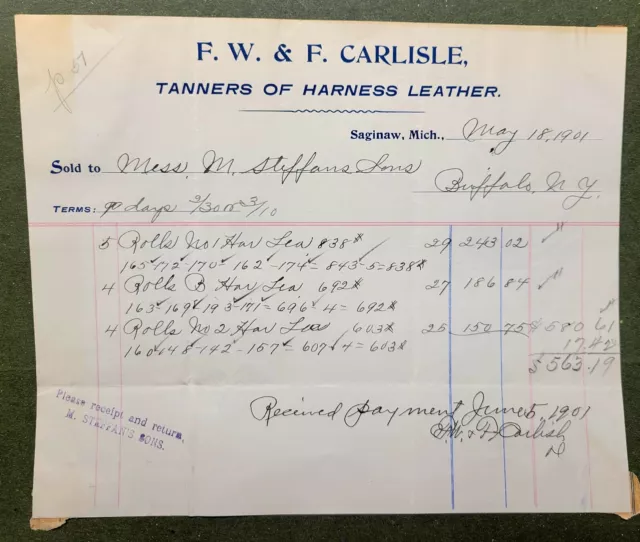 p 57
F. W. & F. CARLISLE,
TANNERS OF HARNESS LEATHER.
Saginaw, Mich., May 18, 1901
Sold to Mess. M. Steffans Sons
Buffalo, N. Y.
TERMS: days 3/30 3/10
5 Rolls No 1 Har Lea 838# 29 243 02
165-172-170-162-174=843-5=838#
4 Rolls B Har Lea 692# 27 186 84
163-169-193-171=696-4=692#
4 Rolls No 2 Har Lea 603# 25 150 75 $580 61
160-148-142-157=607-4=603# 17.42
$563.19
Please receipt and return,
M. STEFFAN'S SONS.
Received payment June 5, 1901
F. W. & F. Carlisle